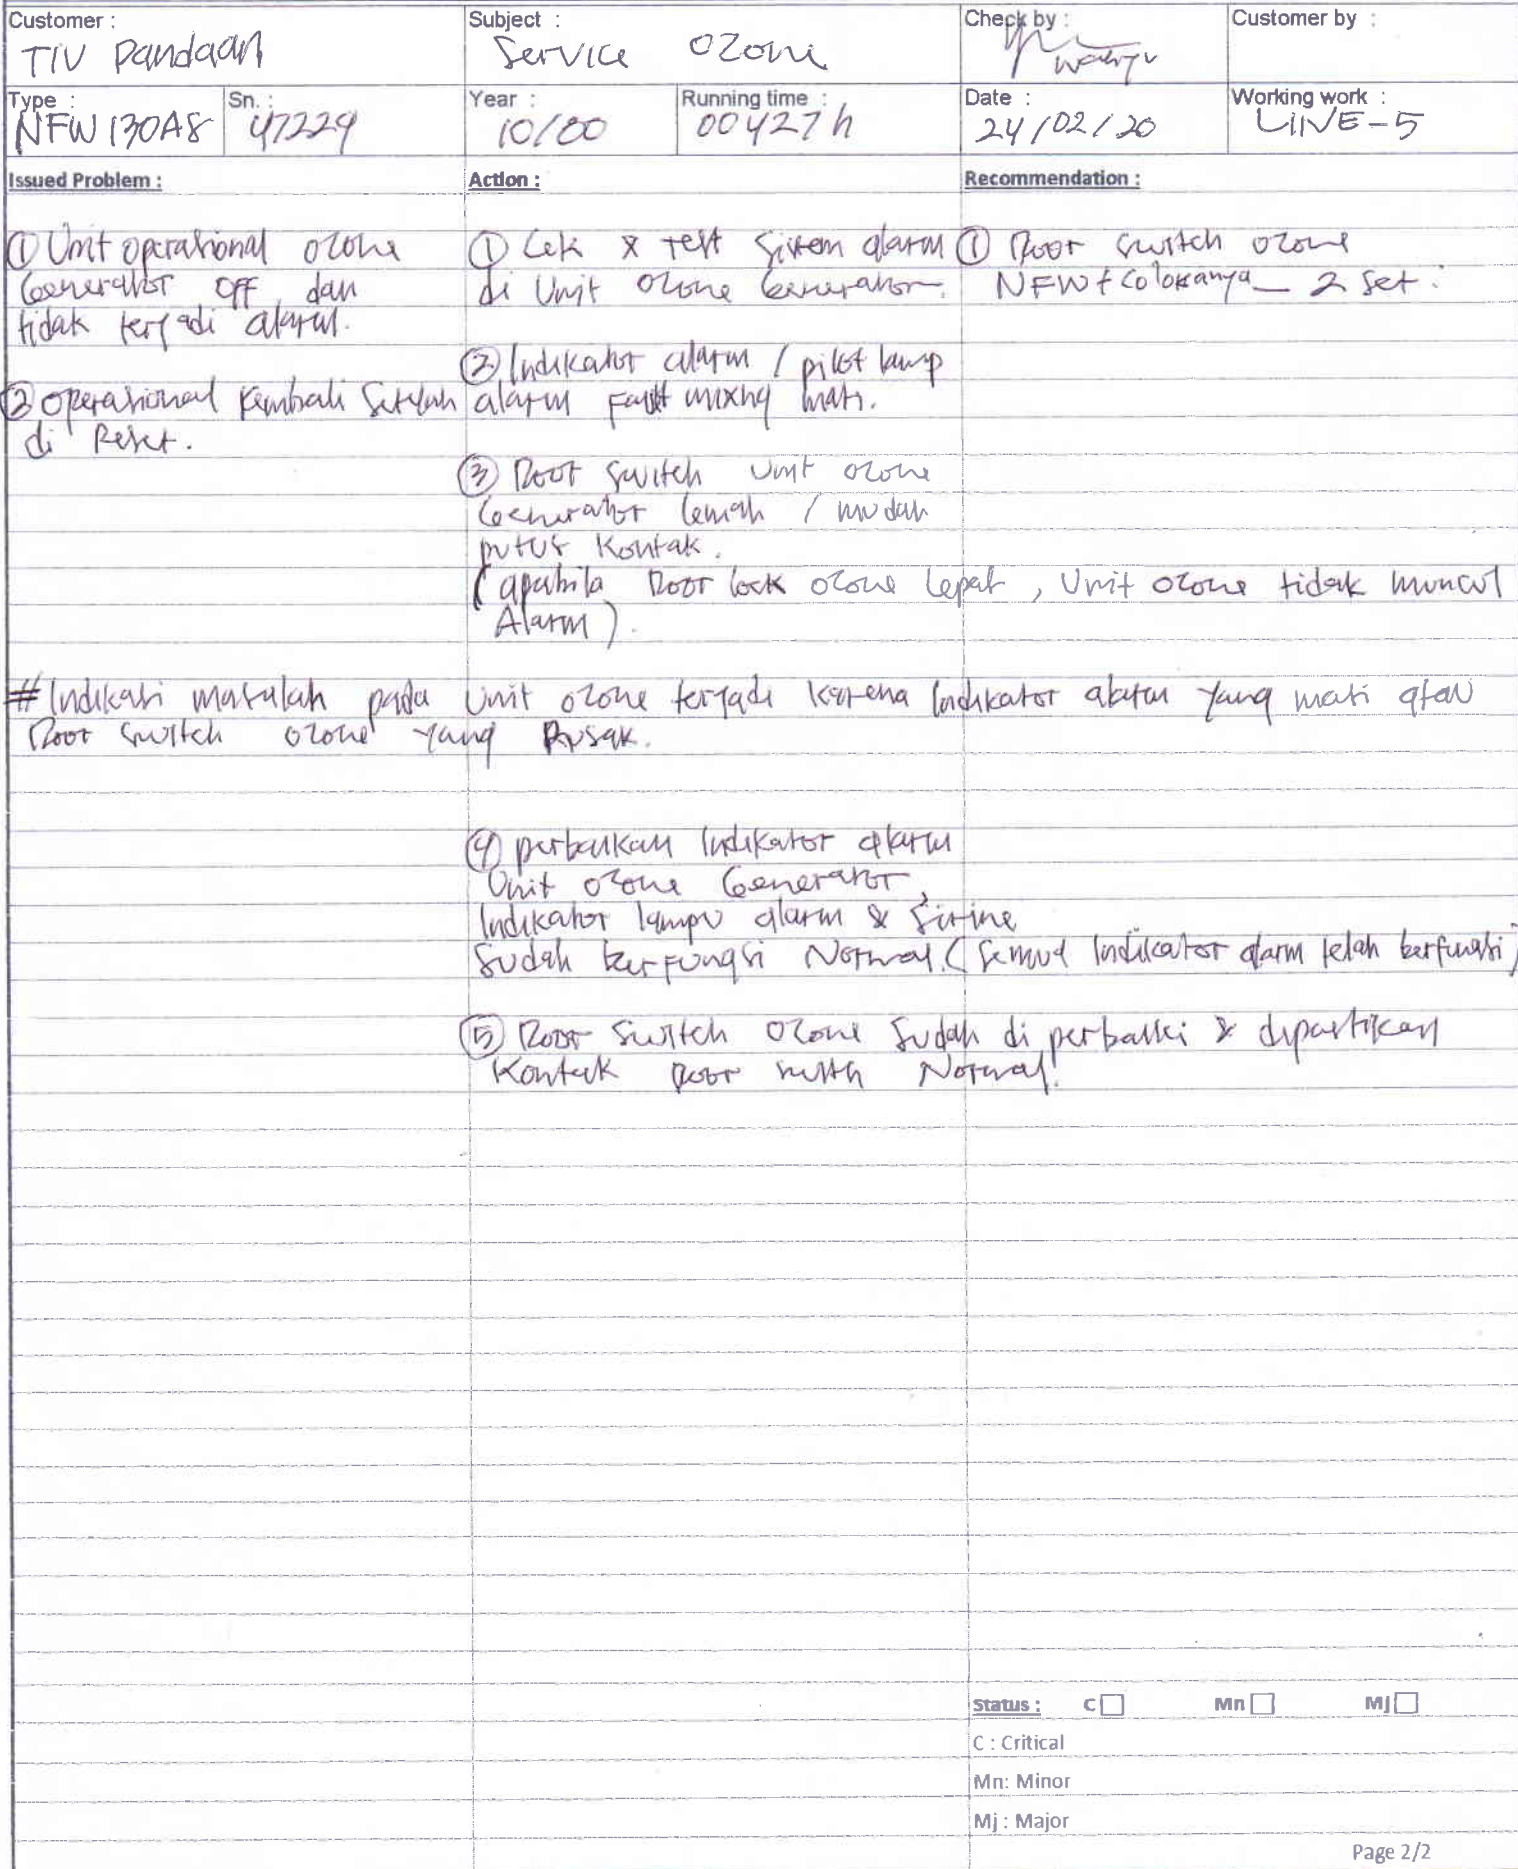 Customer :
TIV Pandaan
Subject :
Service Ozone
Check by :
Wahyu
Customer by :
Type :
NFW 130A8
Sn. :
47229
Year :
10/00
Running time :
00427 h
Date :
24/02/20
Working work :
LINE-5
Issued Problem :
① Unit operasional ozone
Generator OFF dan
tidak terjadi alarm.
② Operasional Kembali Setelah
di Reset.
Action :
① Cek & test Sistem alarm
di Unit Ozone Generator.
② Indikator alarm / pilot lamp
alarm Fault mixing mati.
③ Door Switch Unit ozone
Generator lemah / mudah
putus Kontak.
(apabila Door lock ozone lepas, Unit ozone tidak muncul
Alarm).
Recommendation :
① Door Switch ozone
NFW + Colokanya _ 2 Set.
# Indikasi masalah pada Unit ozone terjadi karena Indikator alarm yang mati atau
Door Switch ozone yang Rusak.
④ perbaikan Indikator alarm
Unit ozone Generator,
Indikator lampu alarm & Sirine
Sudah berfungsi Normal. (Semua Indikator alarm telah berfungsi)
⑤ Door Switch Ozone Sudah di perbaiki & dipastikan
Kontak Door Normal.
Status : C Mn Mj
C : Critical
Mn: Minor
Mj : Major
Page 2/2